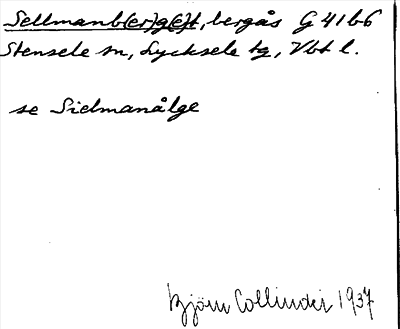 Sellmanb(er)g(e)t, bergås G 41 b6
Stensele sn, Lycksele tg, Vbt l.
se Sidmanålge
Björn Collinder 1937